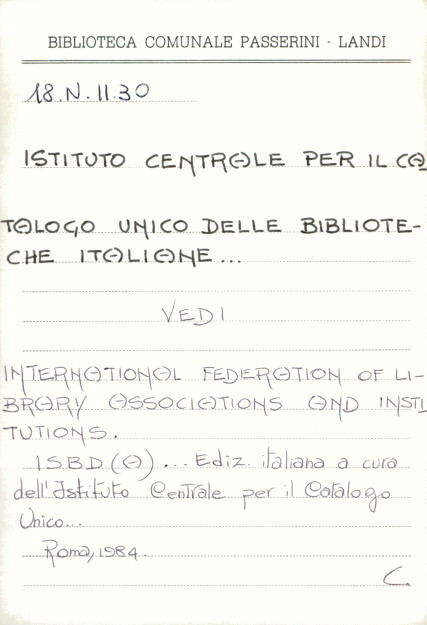 BIBLIOTECA COMUNALE PASSERINI - LANDI
18.N.II.30
ISTITUTO CENTRALE PER IL CA
TALOGO UNICO DELLE BIBLIOTE-
CHE ITALIANE...
VEDI
INTERNATIONAL FEDERATION OF LI-
BRARY ASSOCIATIONS AND INSTI
TUTIONS.
ISBD(A)... Ediz. italiana a cura
dell'Istituto Centrale per il Catalogo
Unico...
Roma, 1984.
C.